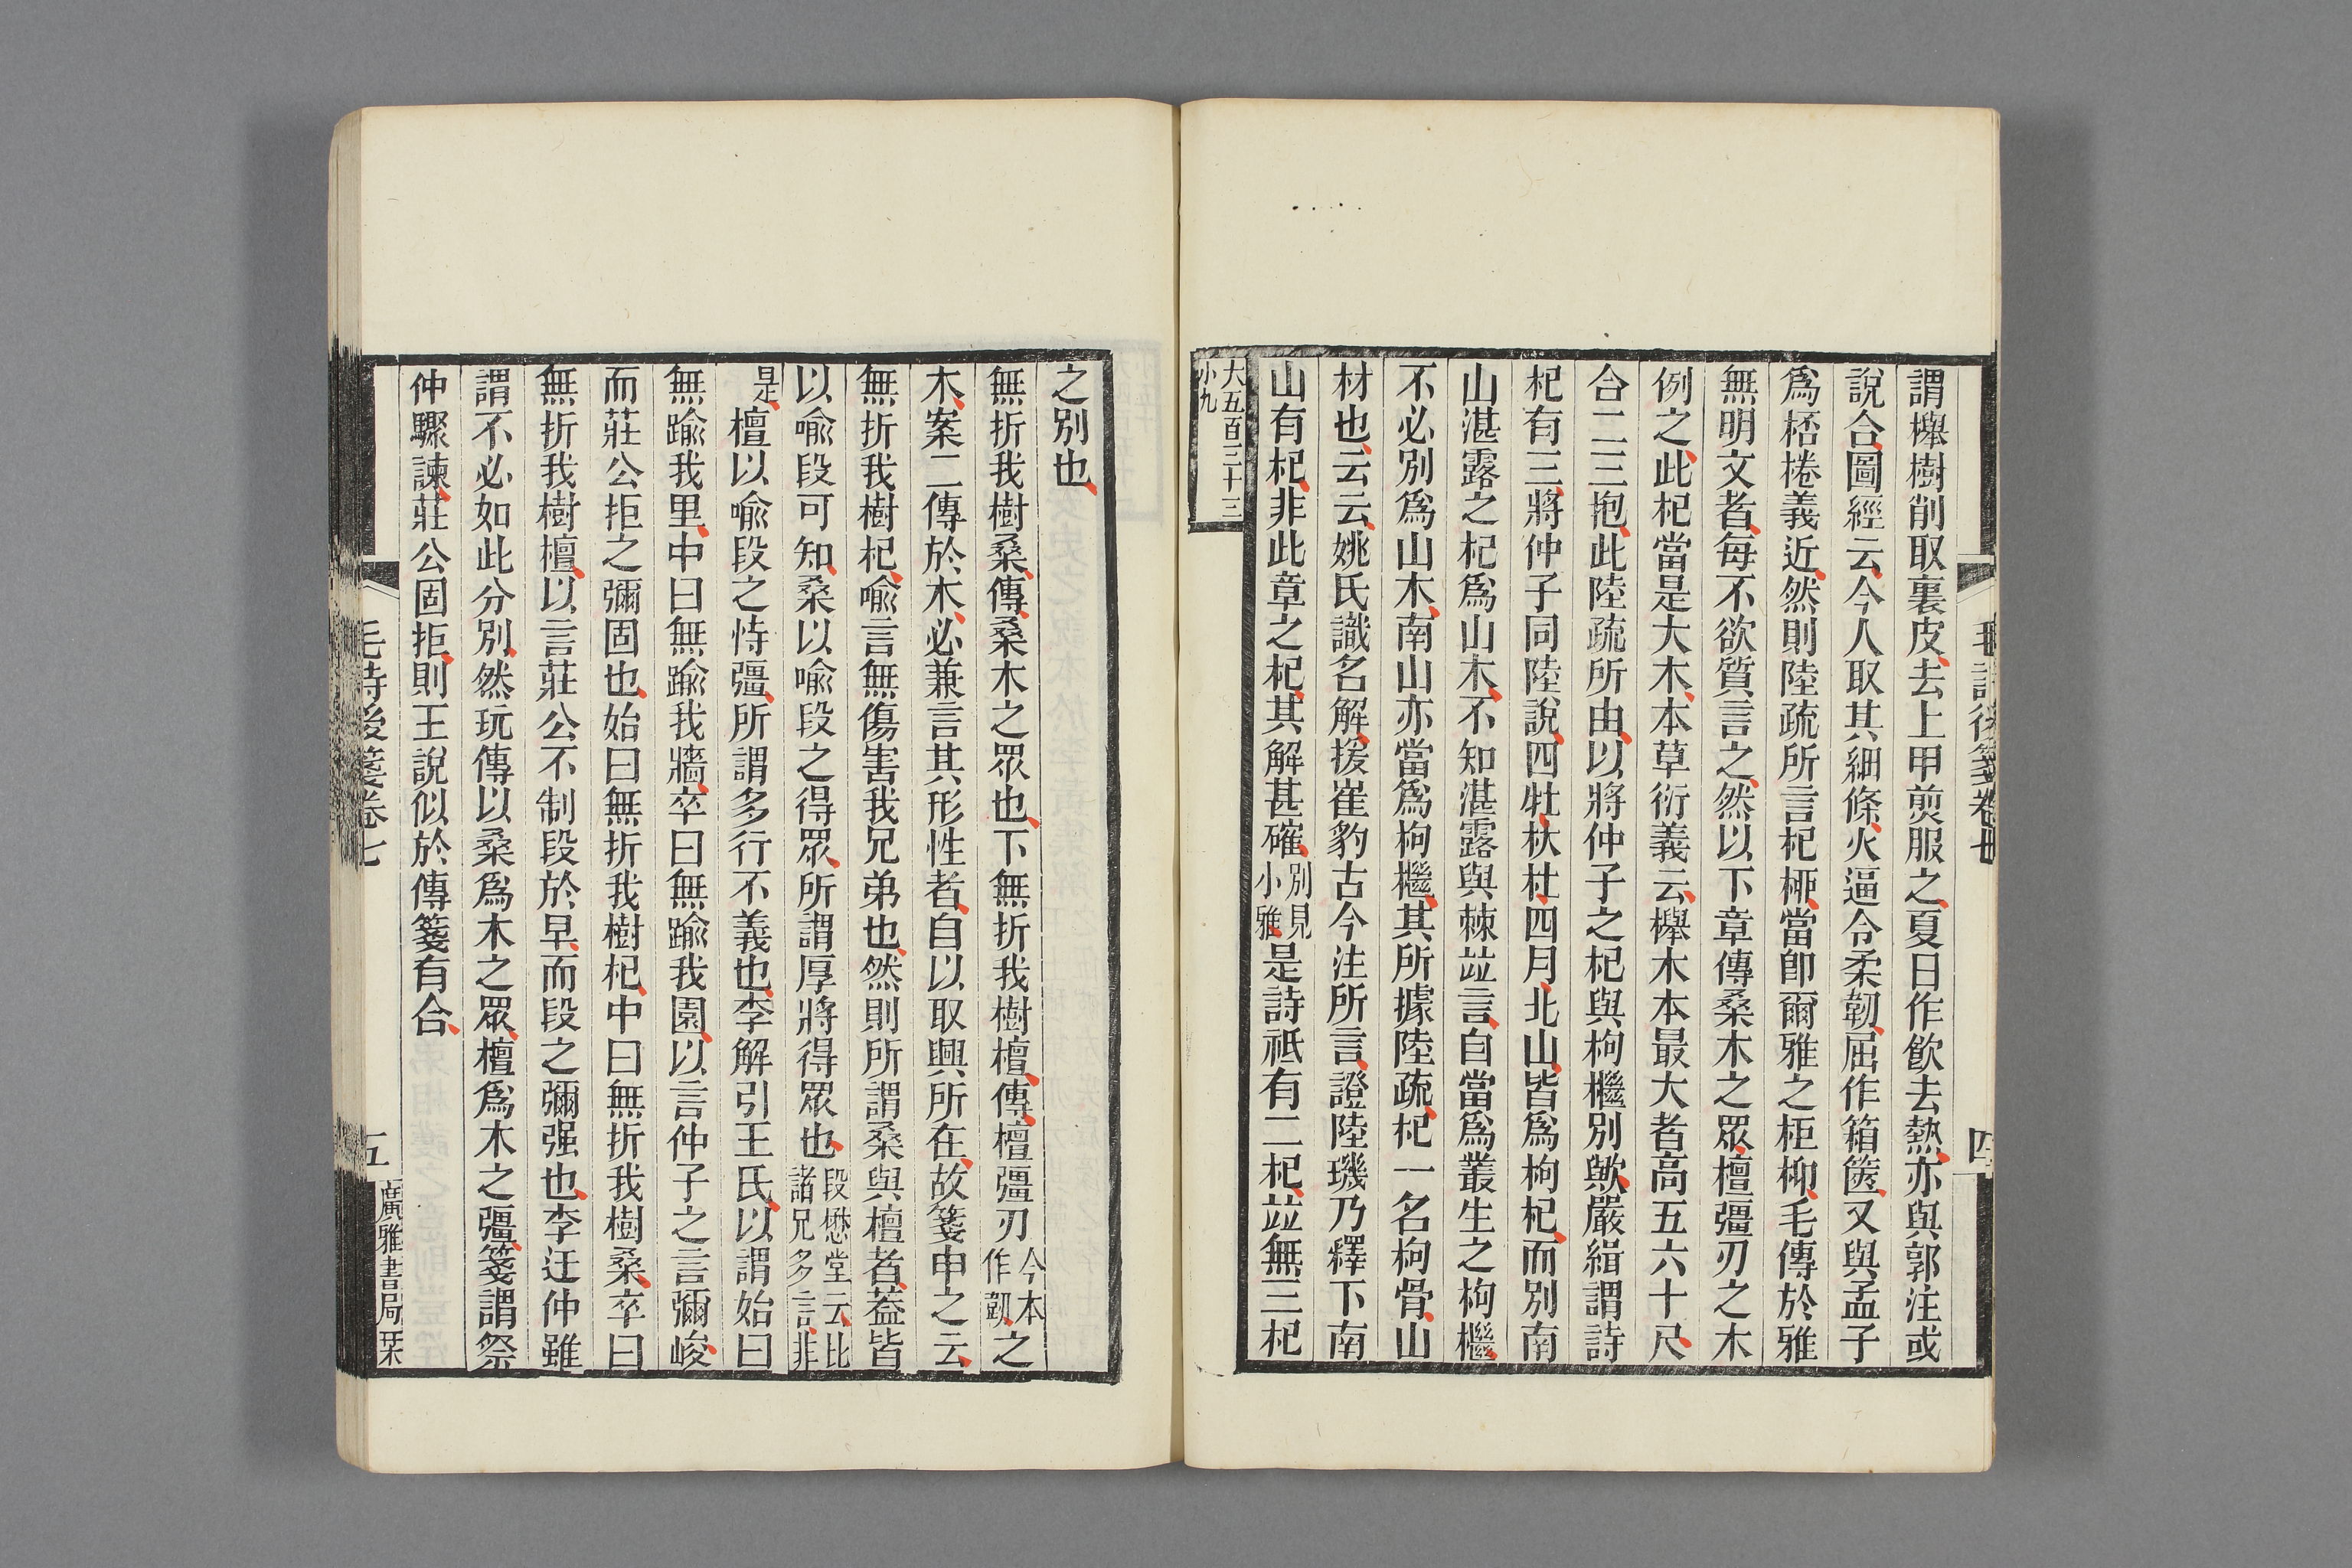 謂櫸樹削取裏皮去上甲煎服之夏日作飮去熱亦與郭注或
說合圖經云今人取其細條火逼令柔韌屈作箱篋又與孟子
爲桮棬義近然則陸疏所言杞柳當卽爾雅之柜桺毛傳於雅
無明文者每不欲質言之然以下章傳桑木之眾檀彊刃之木
例之此杞當是大木本草衍義云櫸木本最大者高五六十尺
合二三抱此陸疏所由以將仲子之杞與枸檵別歟嚴緝謂詩
杞有三將仲子同陸說四牡杕杜四月北山皆爲枸杞而別南
山湛露之杞爲山木不知湛露與棘竝言自當爲叢生之枸檵
不必別爲山木南山亦當爲枸檵其所據陸疏杞一名枸骨山
材也云云姚氏識名解援崔豹古今注所言證陸璣乃釋下南
山有杞非此章之杞其解甚確別見小雅是詩祇有二杞竝無三杞
大五百三十三
小九
毛詩後箋卷七
四
之別也
無折我樹桑傳桑木之眾也下無折我樹檀傳檀彊刃今本作韌之
木案二傳於木必兼言其形性者自以取興所在故箋申之云
無折我樹杞喻言無傷害我兄弟也然則所謂桑與檀者葢皆
以喻段可知桑以喻段之得眾所謂厚將得眾也段懋堂云比諸兄多言非
是檀以喻段之恃彊所謂多行不義也李解引王氏以謂始曰
無踰我里中曰無踰我牆卒曰無踰我園以言仲子之言彌峻
而莊公拒之彌固也始曰無折我樹杞中曰無折我樹桑卒曰
無折我樹檀以言莊公不制段於早而段之彌强也李迂仲雖
謂不必如此分別然玩傳以桑爲木之眾檀爲木之彊箋謂祭
仲驟諫莊公固拒則王說似於傳箋有合
毛詩後箋卷七
五
廣雅書局栞